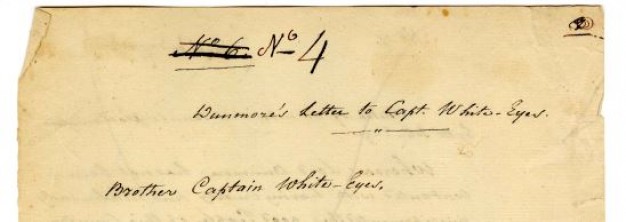 No 6. No 4
Dunmore's Letter to Capt. White-Eyes.
Brother Captain White-Eyes.